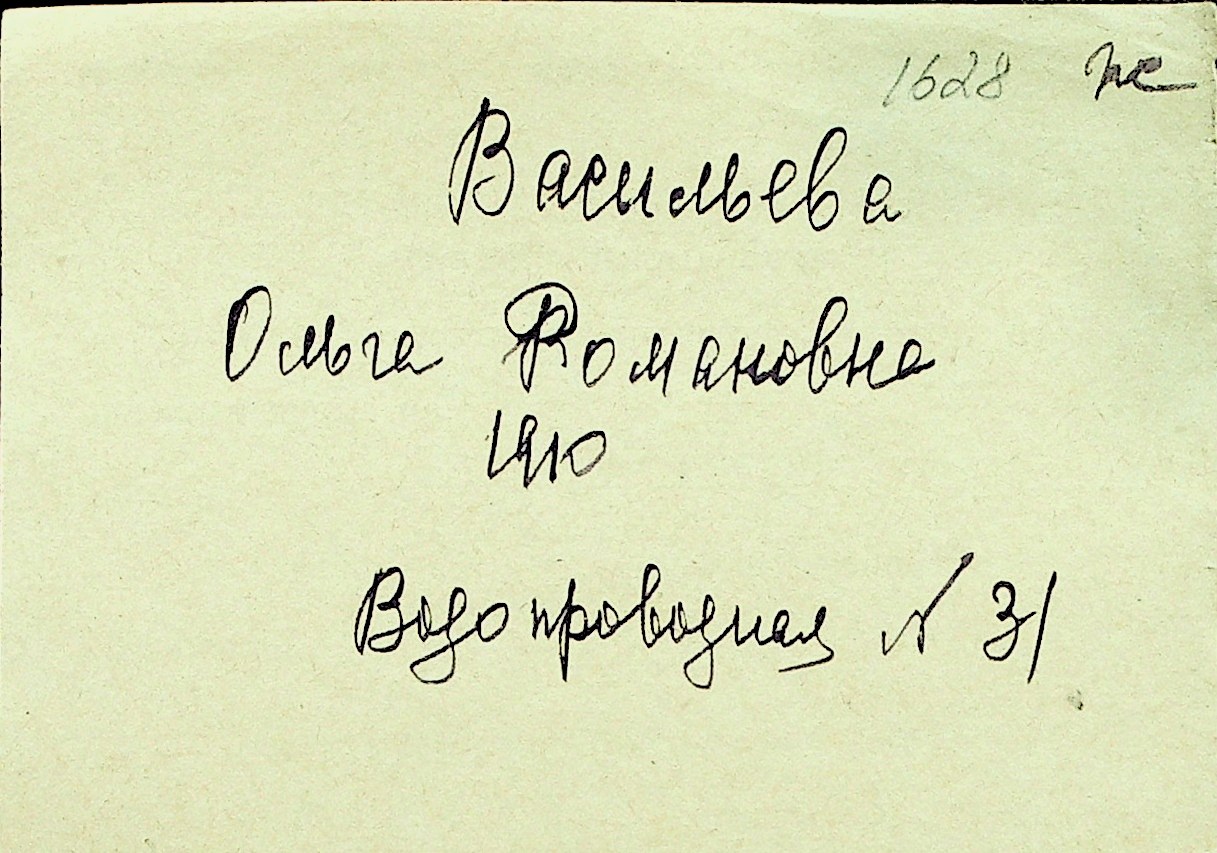 1628 же
Васильева
Ольга Романовна
1910
Водопроводная N 31